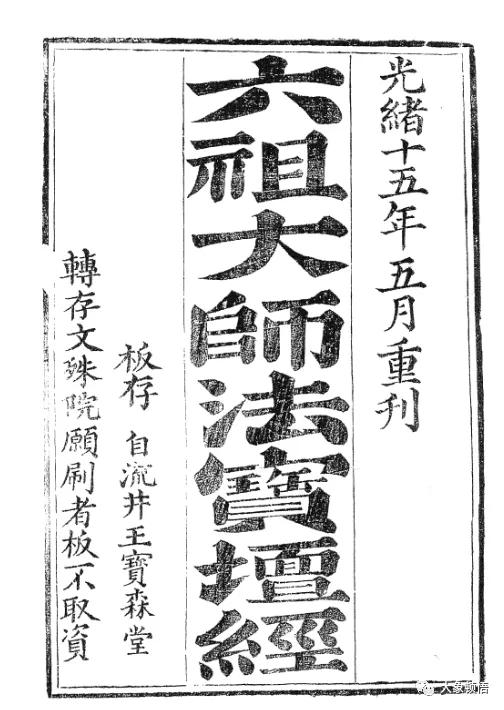 光緒十五年五月重刊
六祖大師法寶壇經
板存自流井王寶森堂
轉存文殊院願刷者板不取資
大象頓悟